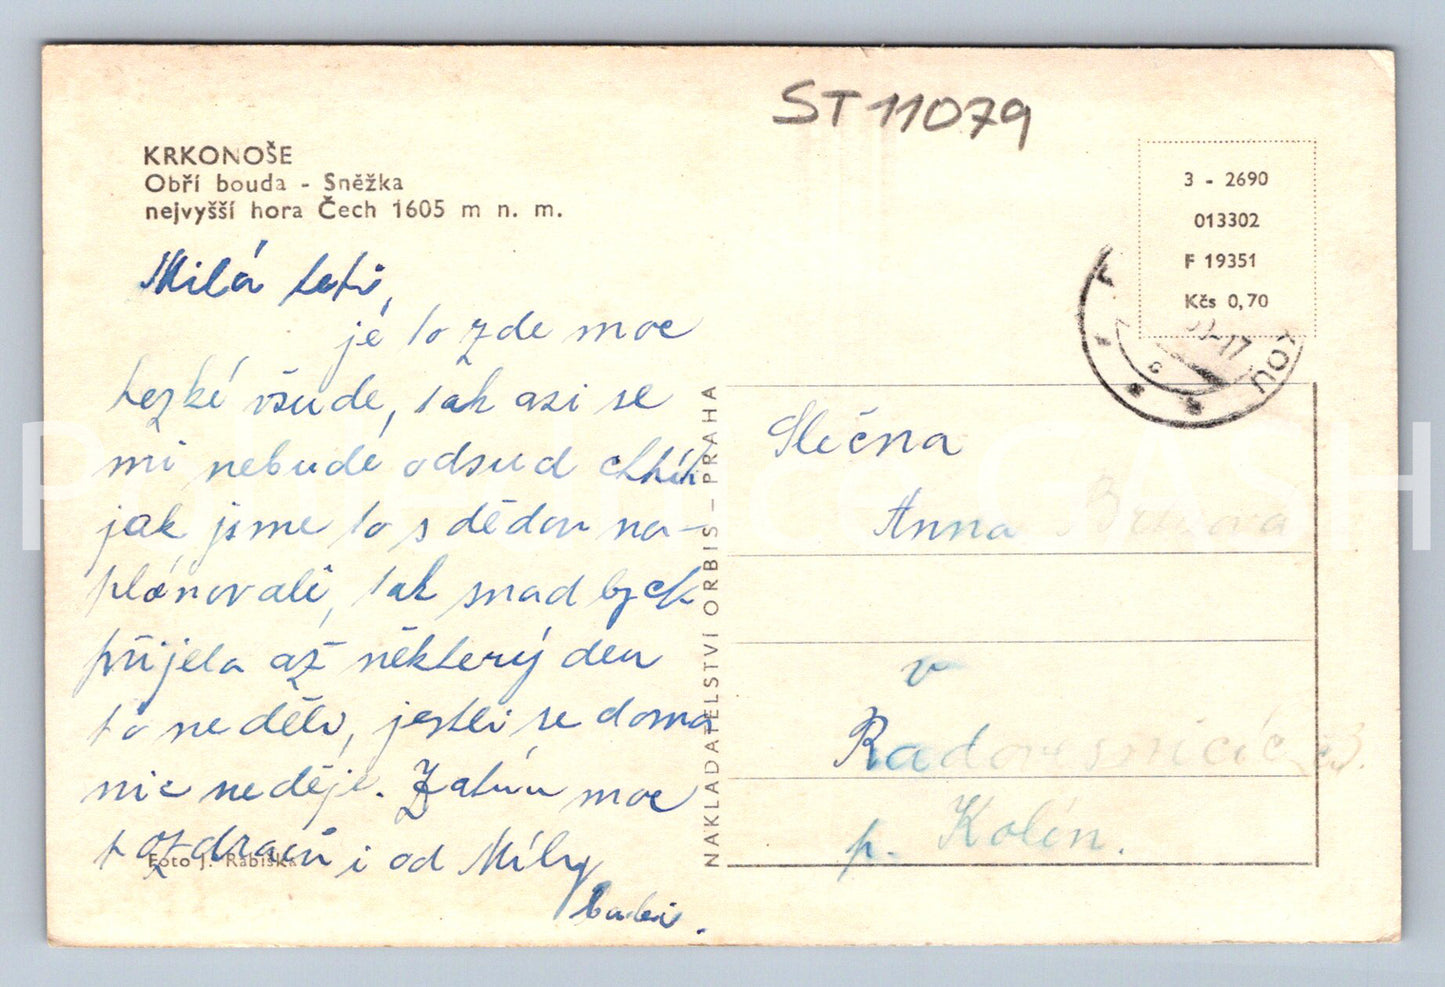 ST 11079
KRKONOŠE
Obří bouda - Sněžka
nejvyšší hora Čech 1605 m n. m.
3 - 2690
013302
F 19351
Kčs 0,70
Milá teti,
je to zde moc
hezké všude, tak asi se
mi nebude odsud chtít
jak jsme to s dědou na-
plánovali, tak snad bych
přijela až některý den
po neděli, jestli se doma
nic neděje. Zatím moc
pozdravů i od Míly
Foto J. Rabiška
NAKLADATELSTVÍ ORBIS – PRAHA
Slečna
Anna
v
Radovesnicích
p. Kolín.